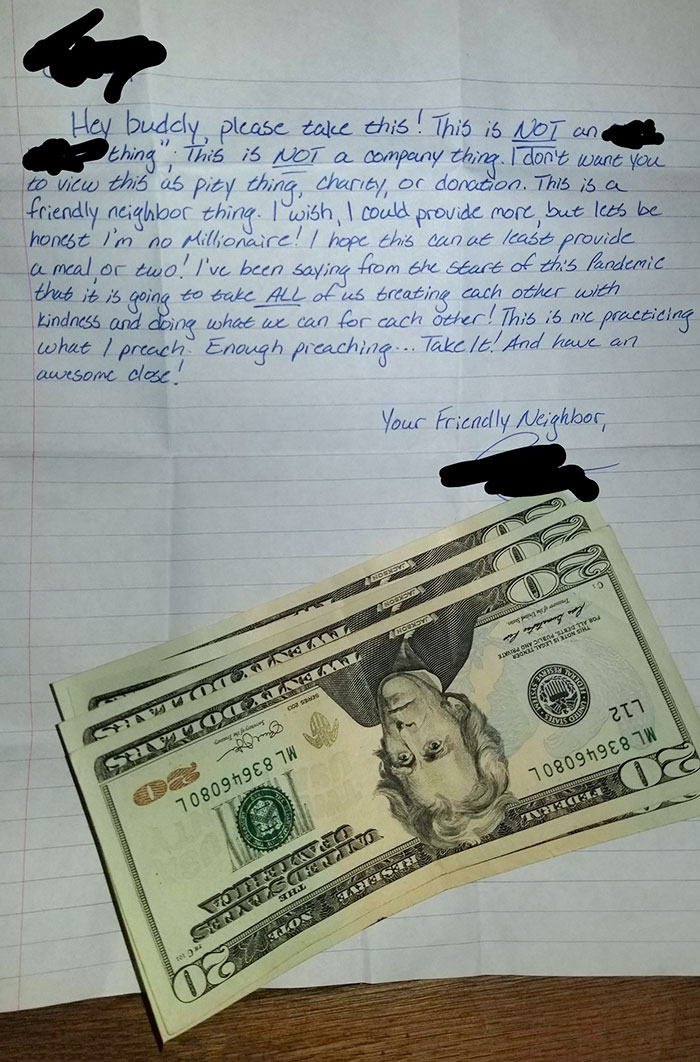 Hey buddy, please take this! This is NOT an
thing". This is NOT a company thing. I don't want you
to view this as pity thing, charity, or donation. This is a
friendly neighbor thing. I wish, I could provide more, but lets be
honest I'm no Millionaire! I hope this can at least provide
a meal, or two! I've been saying from the start of this Pandemic
that it is going to take ALL of us treating each other with
kindness and doing what we can for each other! This is me practicing
what I preach. Enough preaching... Take It! And have an
awesome close!
Your Friendly Neighbor,
20
20
20
JACKSON
JACKSON
JACKSON
TWENTY DOLLARS
TWENTY DOLLARS
THIS NOTE IS LEGAL TENDER
FOR ALL DEBTS, PUBLIC AND PRIVATE
Treasurer of the United States
UNITED STATES FEDERAL RESERVE SYSTEM
SERIES 2013
Secretary of the Treasury
L12
ML 83646080L
ML 83646080L
20
20
THE
UNITED STATES
OF AMERICA
FEDERAL RESERVE NOTE
20